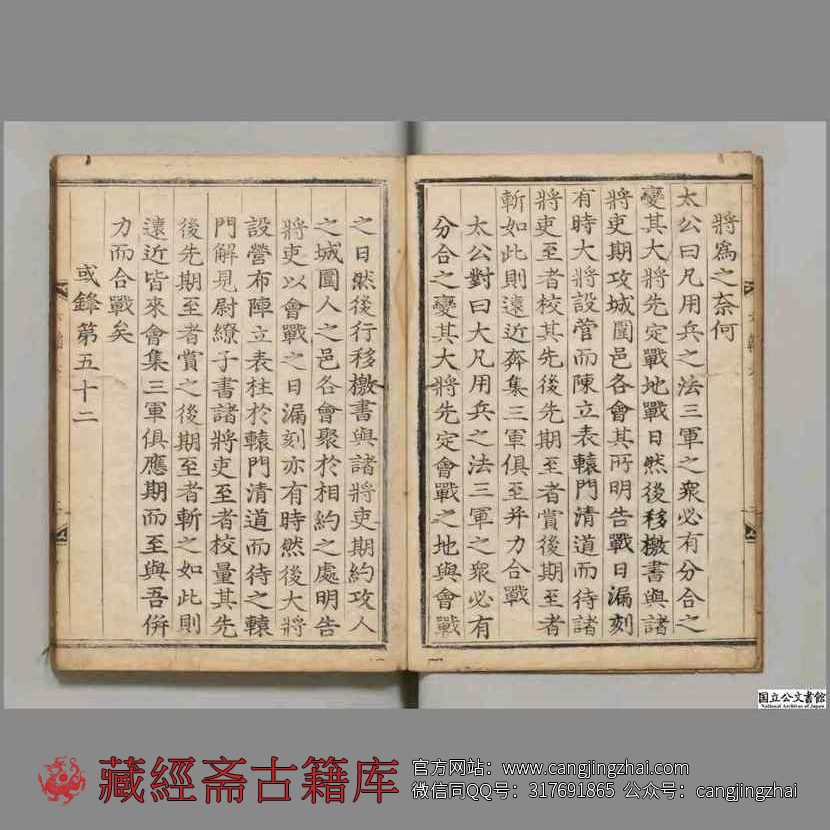 將爲之奈何
太公曰凡用兵之法三軍之衆必有分合之
變其大將先定戰地戰日然後移檄書與諸
將吏期攻城圍邑各會其所明告戰日漏刻
有時大將設營而陳立表轅門清道而待諸
將吏至者校其先後先期至者賞後期至者
斬如此則遠近奔集三軍俱至并力合戰
太公對曰大凡用兵之法三軍之衆必有
分合之變其大將先定會戰之地與會戰
之日然後行移檄書與諸將吏期約攻人
之城圍人之邑各會聚於相約之處明告
將吏以會戰之日漏刻亦有時然後大將
設營布陣立表柱於轅門清道而待之轅
門解見尉繚子書諸將吏至者校量其先
後先期至者賞之後期至者斬之如此則
遠近皆來會集三軍俱應期而至與吾併
力而合戰矣
或鋒第五十二
国立公文書館
National Archives of Japan
藏經斋古籍库
官方网站：www.cangjingzhai.com
微信同QQ号：317691865 公众号：cangjingzhai